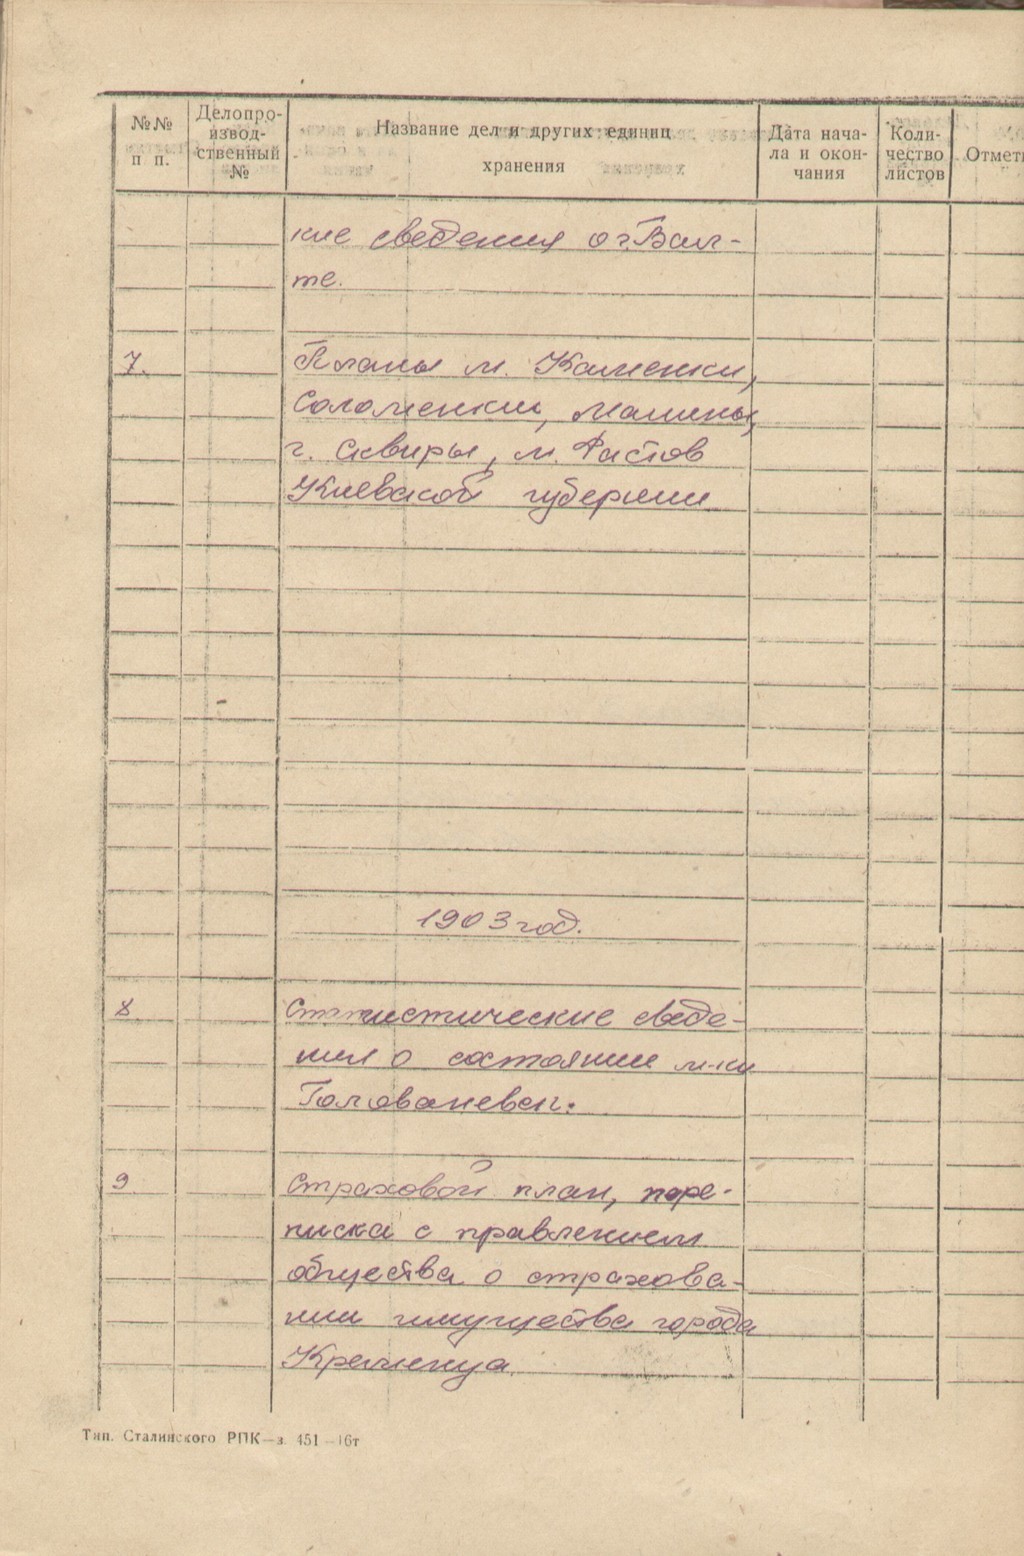 №№ п п.
Делопро-
извод-
ственный
№
Название дел и других единиц
хранения
Дата нача-
ла и окон-
чания
Коли-
чество
листов
Отмет
кие сведения о г. Бал-
те.
7. Планы м. Каменки,
Соломенки, Машины,
г. Сквиры, м. Фастов
Киевской губернии
1903 год.
8 Статистические сведе-
ния о состоянии м-ки
Голованевск.
9 Страховой план, пере-
писка с правлением
общества о страхова-
нии имущества города
Кременца
Тип. Сталинского РПК—з. 451—16т